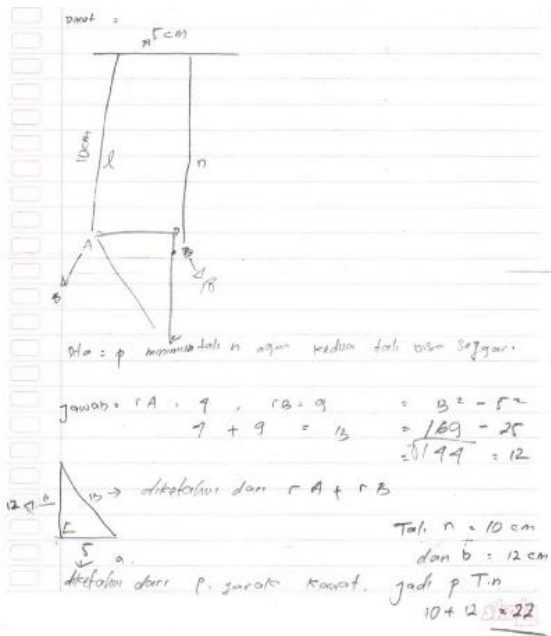 Dimat =
5 cm
10cm
l
n
A
B
8
Dita = p minimum tali n agar kedua tali bisa sejajar.
Jawab = rA = 4 , rB = 9 = 13² - 5²
4 + 9 = 13 = 169 - 25
= √144 = 12
12 b 13 → diketahui dari rA + rB
5 a.
Tali n = 10 cm
dan b = 12 cm
diketahui dari p. jarak kawat. jadi p T.n
10 + 12 = 22